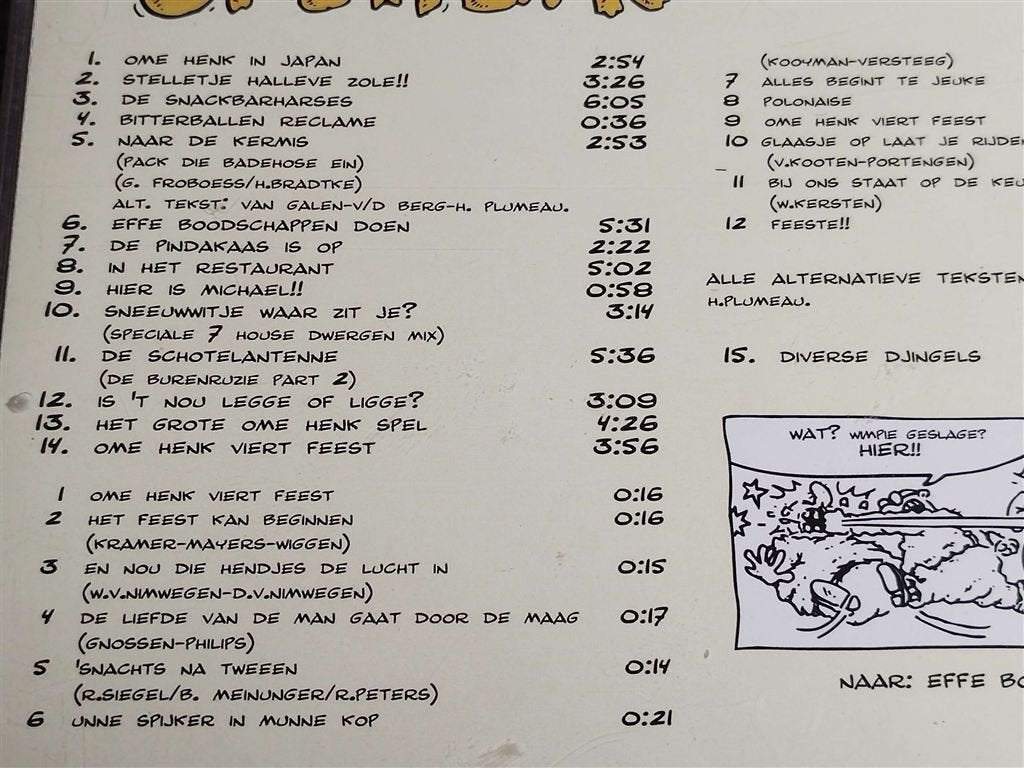 1. OME HENK IN JAPAN 2:54
2. STELLETJE HALLEVE ZOLE!! 3:26
3. DE SNACKBARHARSES 6:05
4. BITTERBALLEN RECLAME 0:36
5. NAAR DE KERMIS 2:53
(PACK DIE BADEHOSE EIN)
(G. FROBOESS/H.BRADTKE)
ALT. TEKST: VAN GALEN-V/D BERG-H. PLUMEAU.
6. EFFE BOODSCHAPPEN DOEN 5:31
7. DE PINDAKAAS IS OP 2:22
8. IN HET RESTAURANT 5:02
9. HIER IS MICHAEL!! 0:58
10. SNEEUWWITJE WAAR ZIT JE? 3:14
(SPECIALE 7 HOUSE DWERGEN MIX)
11. DE SCHOTELANTENNE 5:36
(DE BURENRUZIE PART 2)
12. IS 'T NOU LEGGE OF LIGGE? 3:09
13. HET GROTE OME HENK SPEL 4:26
14. OME HENK VIERT FEEST 3:56
1 OME HENK VIERT FEEST 0:16
2 HET FEEST KAN BEGINNEN 0:16
(KRAMER-MAYERS-WIGGEN)
3 EN NOU DIE HENDJES DE LUCHT IN 0:15
(W.V.NIMWEGEN-D.V.NIMWEGEN)
4 DE LIEFDE VAN DE MAN GAAT DOOR DE MAAG 0:17
(GNOSSEN-PHILIPS)
5 'SNACHTS NA TWEEEN 0:14
(R.SIEGEL/B. MEINUNGER/R.PETERS)
6 UNNE SPIJKER IN MUNNE KOP 0:21
(KOOYMAN-VERSTEEG)
7 ALLES BEGINT TE JEUKE
8 POLONAISE
9 OME HENK VIERT FEEST
10 GLAASJE OP LAAT JE RIJDE
(V.KOOTEN-PORTENGEN)
11 BIJ ONS STAAT OP DE KEU
(W.KERSTEN)
12 FEESTE!!
ALLE ALTERNATIEVE TEKSTEN
H.PLUMEAU.
15. DIVERSE DJINGELS
WAT? WIMPIE GESLAGE?
HIER!!
NAAR: EFFE BO